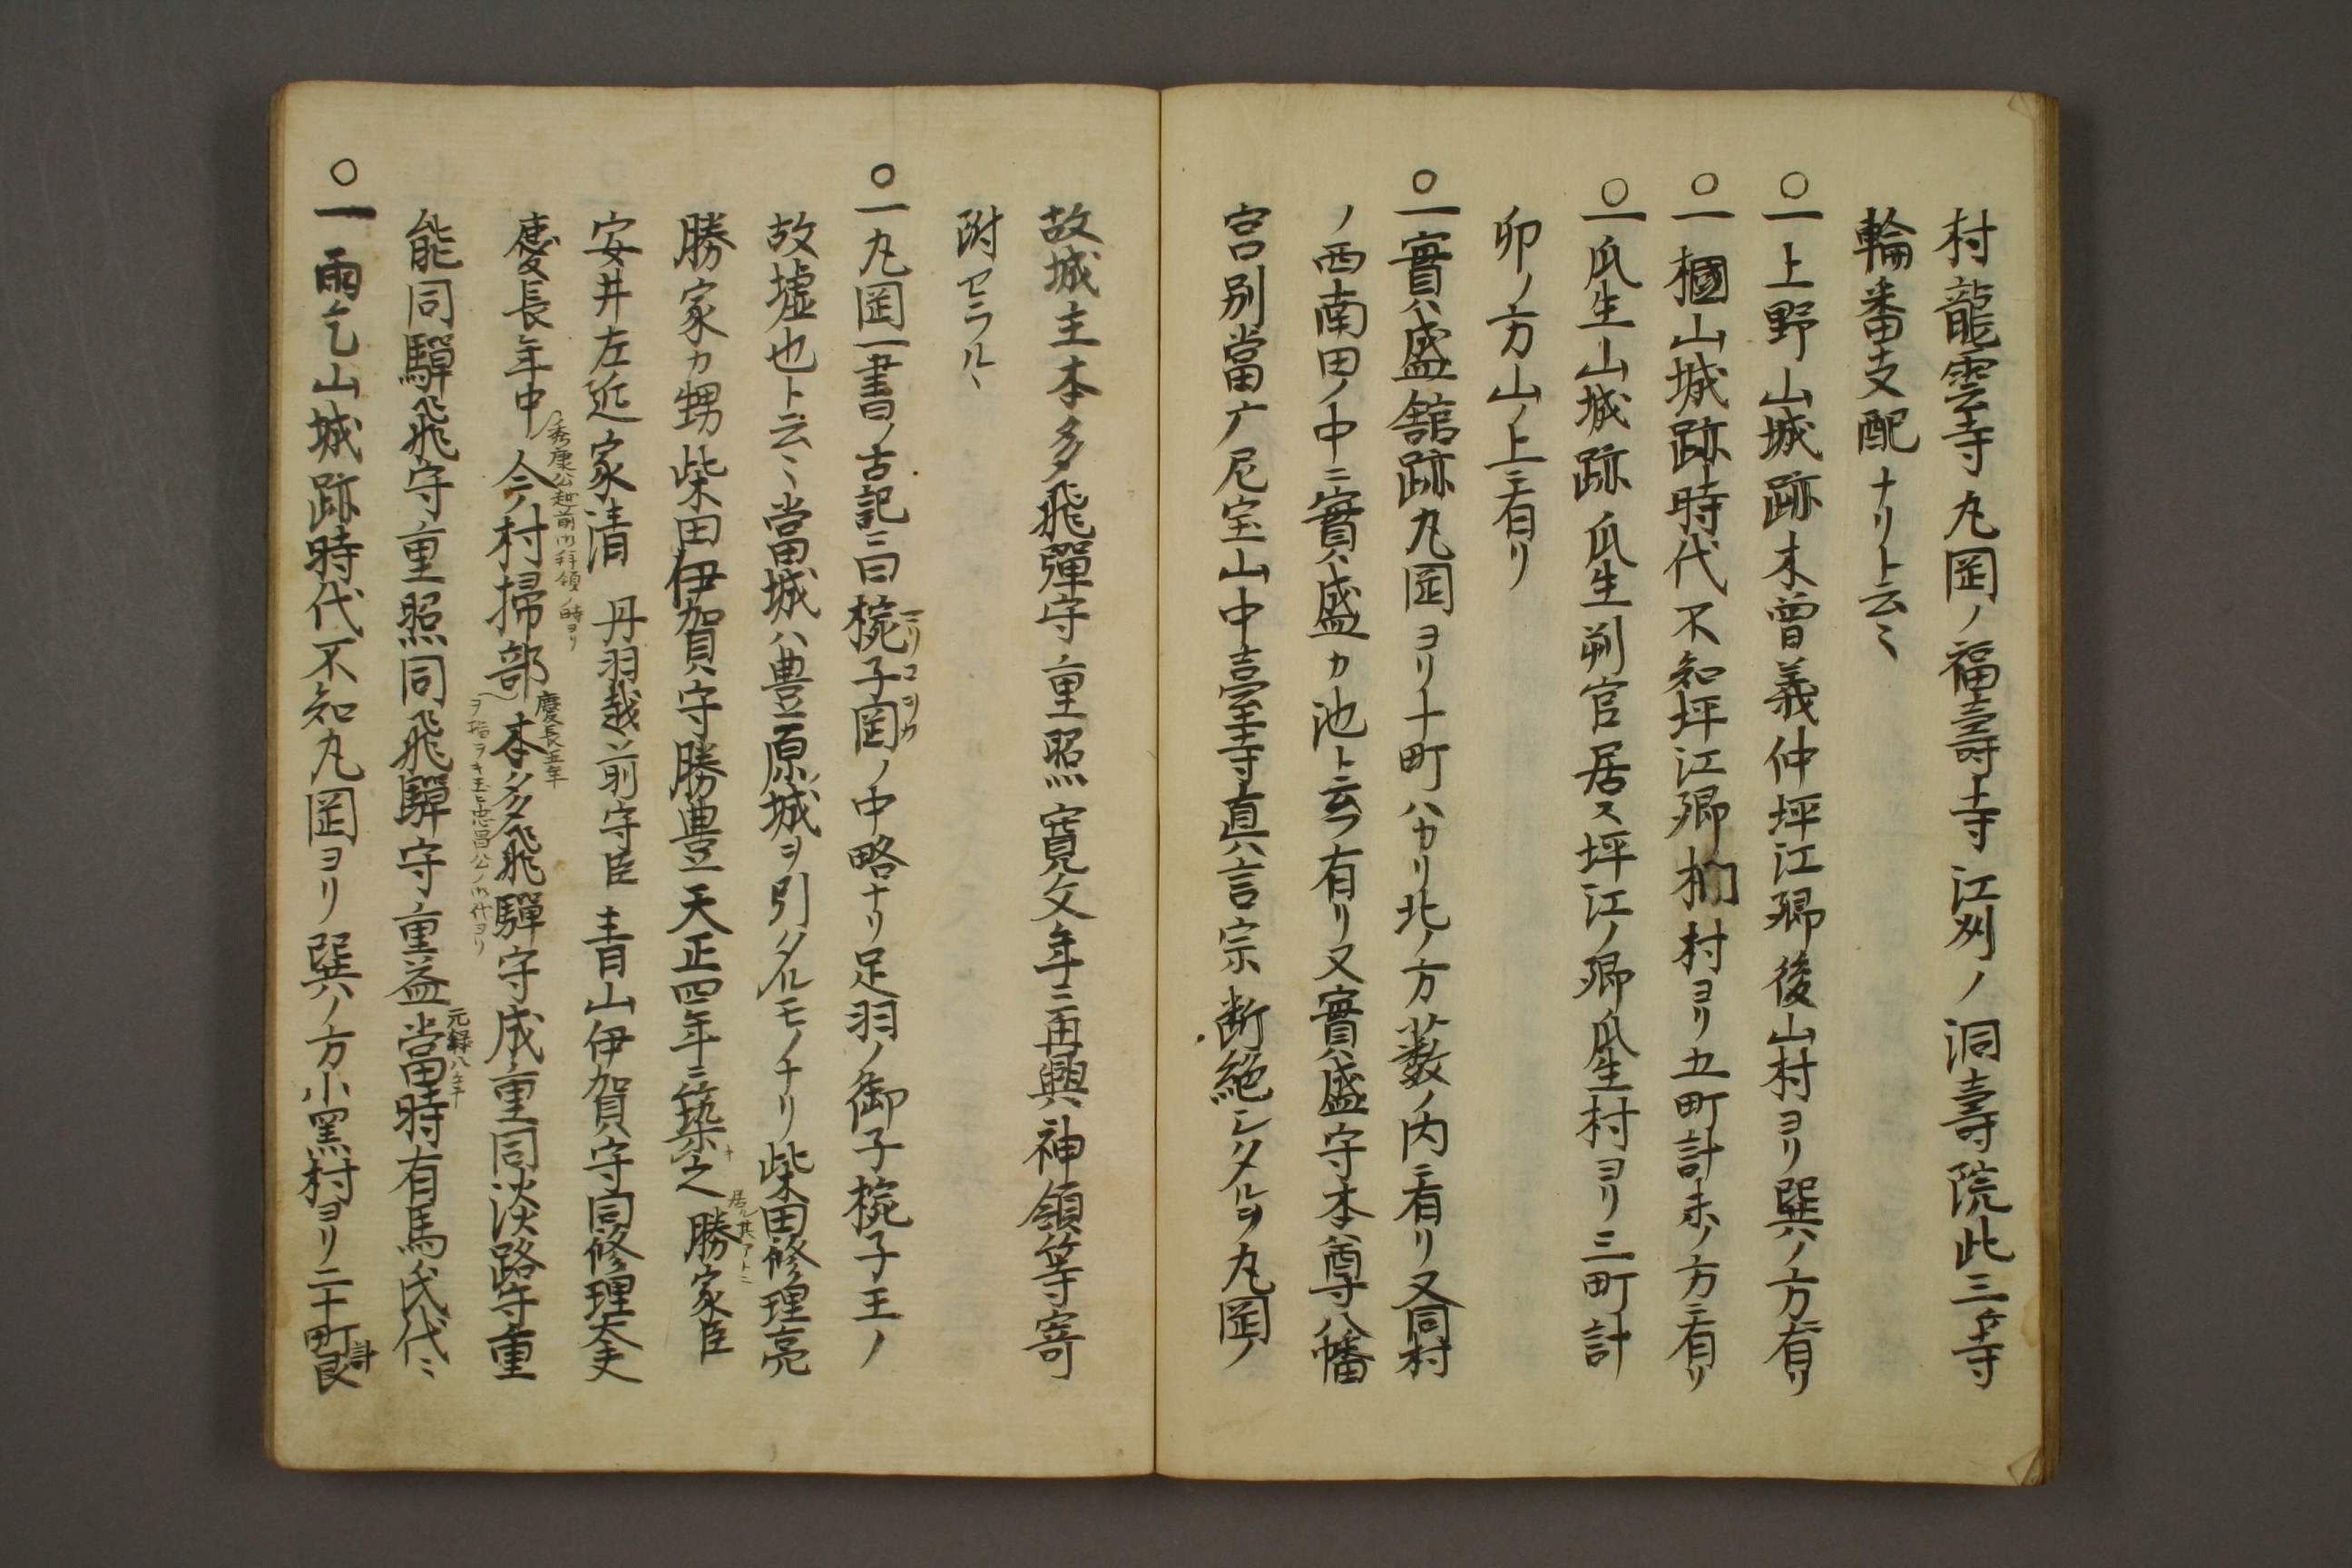 村龍雲寺丸岡ノ福壽寺江刕ノ洞壽院此三ケ寺
輪番支配ナリト云ミ
〇一上野山城跡木曽義仲坪江郷後山村ヨリ巽ノ方ニ有リ
〇一椢山城跡時代不知坪江郷椚村ヨリ五町計未ノ方ニ有リ
〇一瓜生山城跡瓜生判官居ス坪江ノ郷瓜生村ヨリ三町計
卯ノ方山ノ上ニ有リ
〇一實盛舘跡丸岡ヨリ十町ハカリ北ノ方薮ノ内ニ有リ又同村
ノ西南田ノ中ニ實盛カ池ト云フ有リ又實盛守本尊八幡
宮別當广尼宝山中臺寺真言宗断絶シタルヲ丸岡ノ
故城主本多飛彈守重照寛文年ニ再興神領等寄
附セラルヽ
〇一丸岡一書ノ古記ニ曰椀子岡ノ中略ナリ足羽ノ御子椀子王ノ
マリコヲカ
故墟也ト云ミ當城ハ豊原城ヲ引タルモノナリ柴田修理亮
勝家カ甥柴田伊賀守勝豊天正四年ニ築キ之勝家臣
居ル其アトニ
安井左近家清 丹羽越前守臣 青山伊賀守同修理太夫
慶長年中今ノ村掃部本多飛驒守成重同淡路守重
秀康公越前内拝領ノ時ヨリ
慶長五年
能同驒飛守重照同飛驒守重益當時有馬氏代ミ
元録八年
〇一雨乞山城跡時代不知丸岡ヨリ巽ノ方小黒村ヨリ二十町計艮